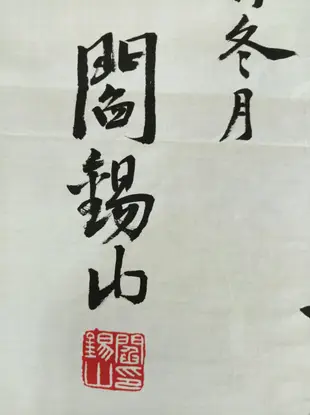 冬月
閻錫山
閻錫山印